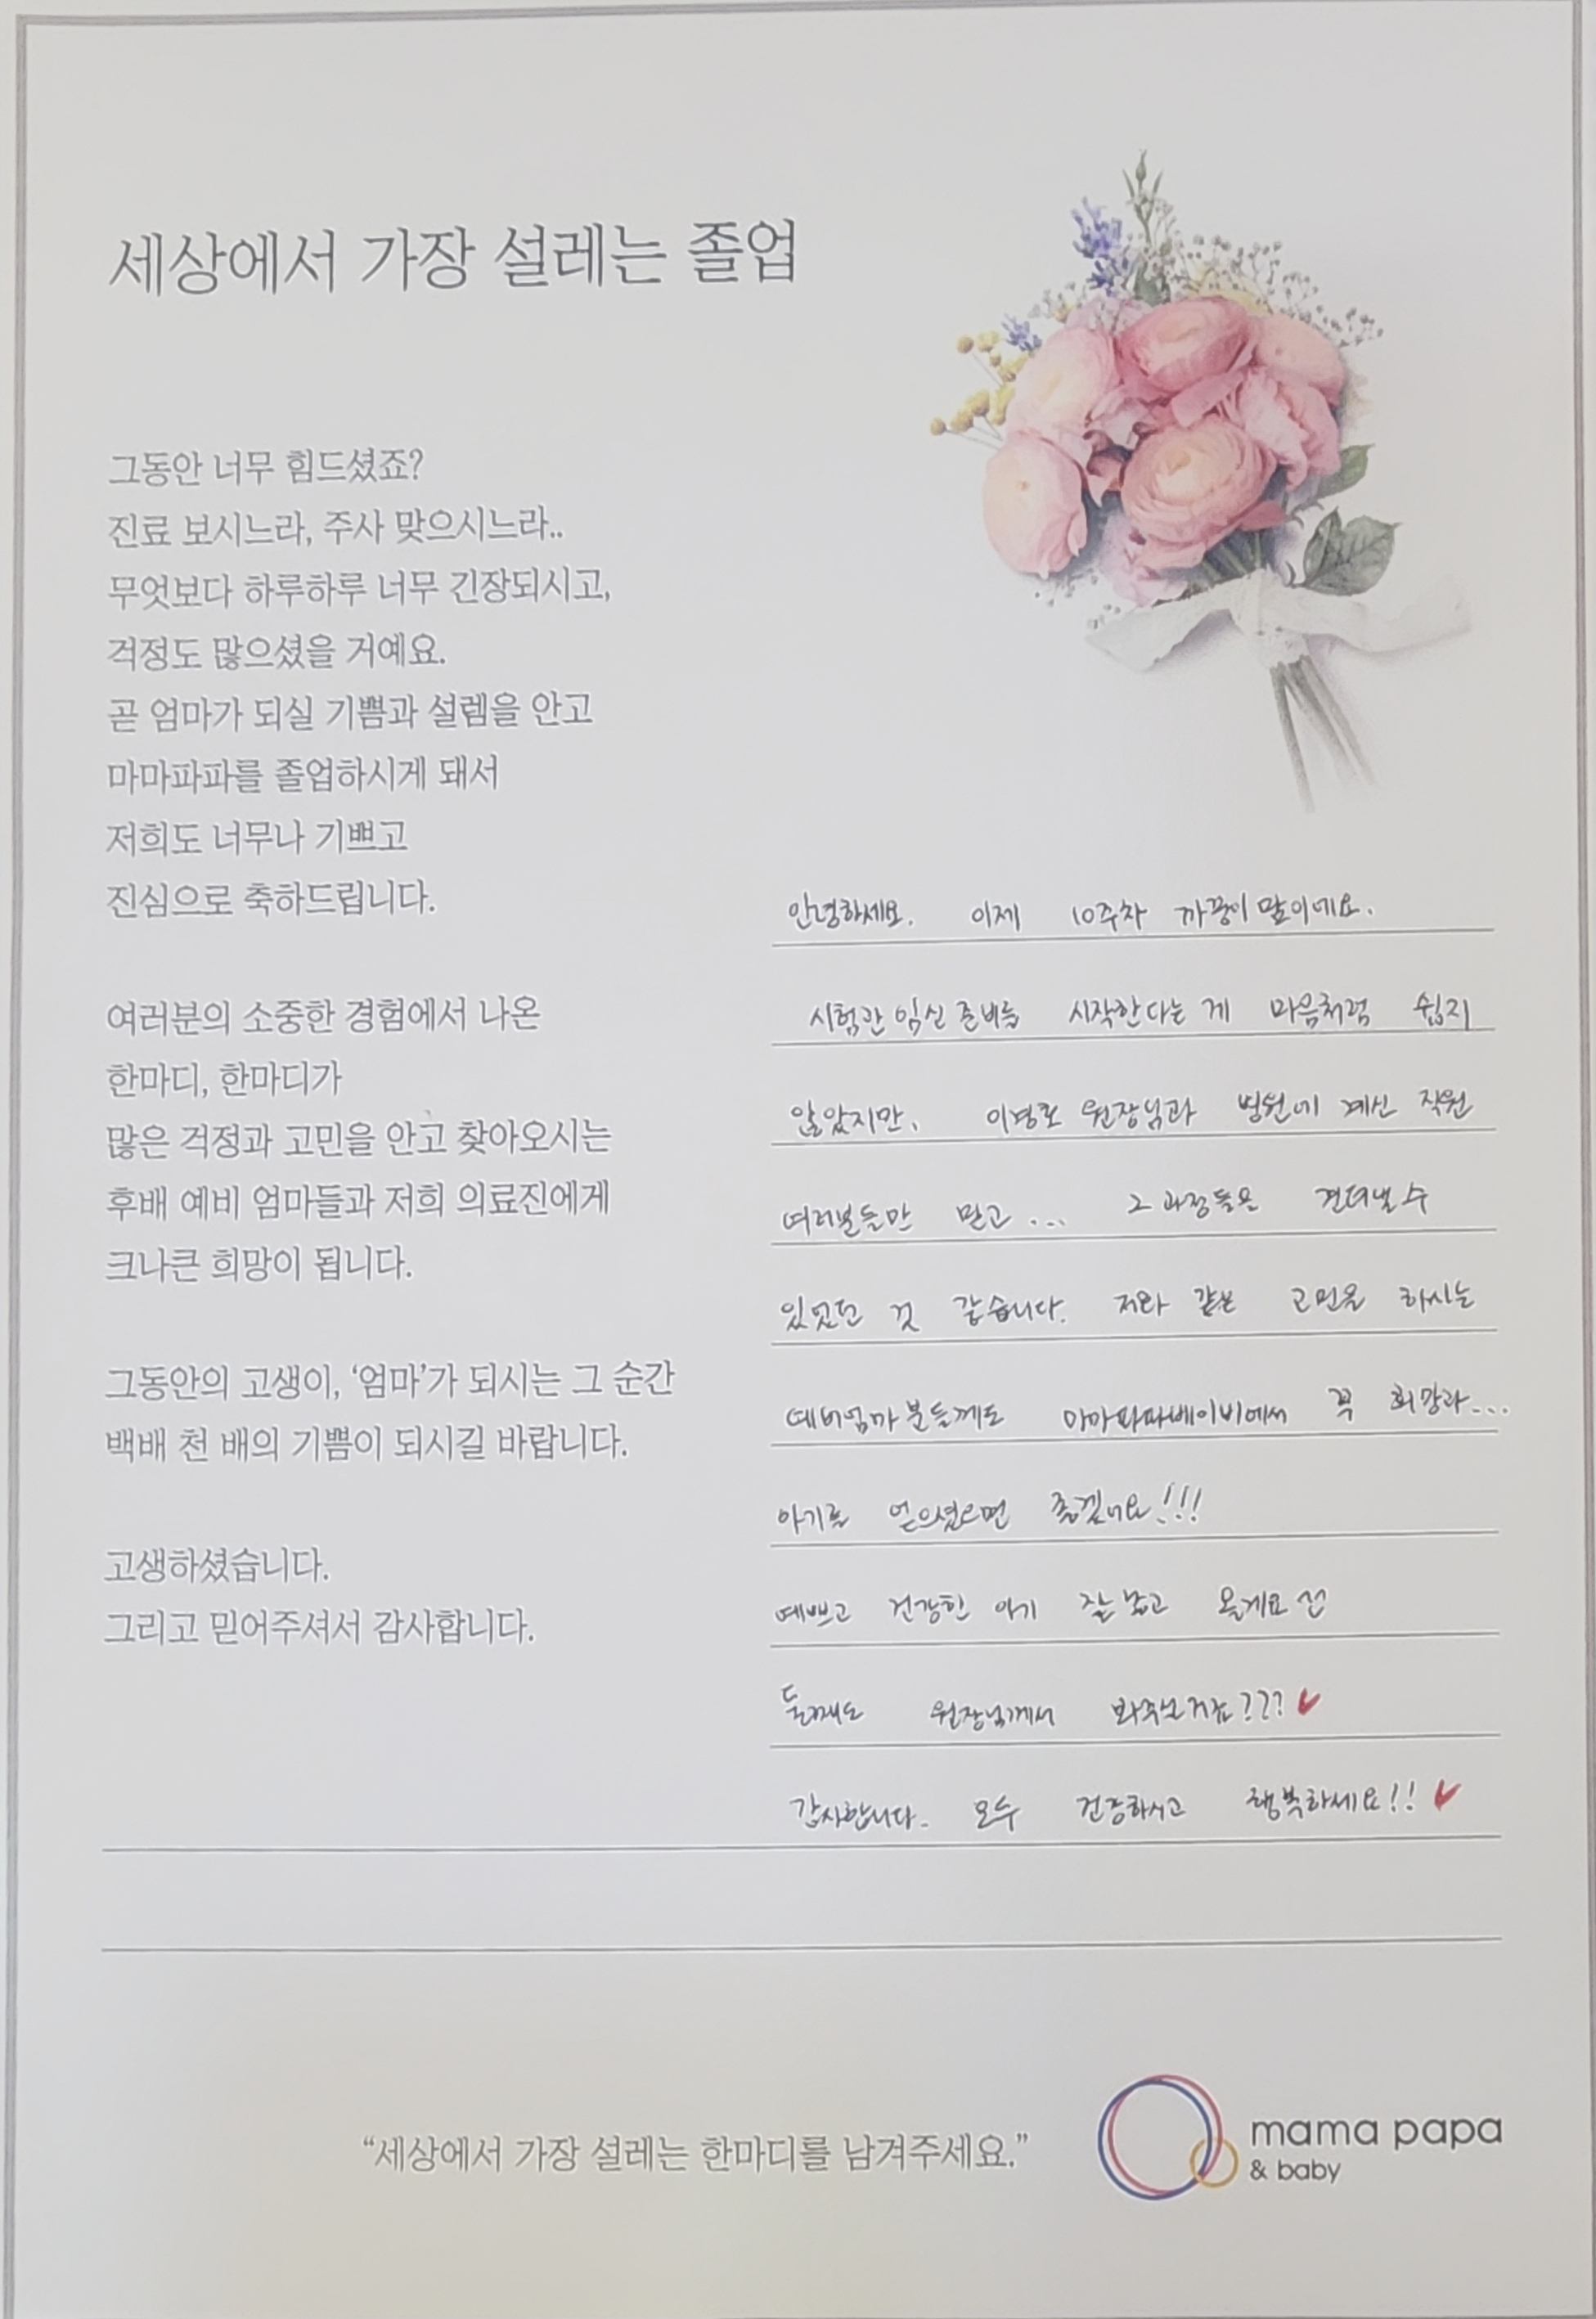 세상에서 가장 설레는 졸업
그동안 너무 힘드셨죠?
진료 보시느라, 주사 맞으시느라..
무엇보다 하루하루 너무 긴장되시고,
걱정도 많으셨을 거예요.
곧 엄마가 되실 기쁨과 설렘을 안고
마마파파를 졸업하시게 돼서
저희도 너무나 기쁘고
진심으로 축하드립니다.
여러분의 소중한 경험에서 나온
한마디, 한마디가
많은 걱정과 고민을 안고 찾아오시는
후배 예비 엄마들과 저희 의료진에게
크나큰 희망이 됩니다.
그동안의 고생이, ‘엄마’가 되시는 그 순간
백배 천 배의 기쁨이 되시길 바랍니다.
고생하셨습니다.
그리고 믿어주셔서 감사합니다.
안녕하세요. 이제 10주차 까꿍이 맘이에요.
시험관 임신 준비를 시작한다는 게 마음처럼 쉽지
않았지만, 이경호 원장님과 병원에 계신 직원
여러분들만 믿고... 그 과정들을 견뎌낼 수
있었던 것 같습니다. 저와 같은 고민을 하시는
예비엄마분들께도 마마파파베이비에서 꼭 희망과...
아기를 얻으셨으면 좋겠네요!!!
예쁘고 건강한 아기 잘 낳고 올게요
둘째도 원장님께서 봐주실거죠???
감사합니다. 모두 건강하시고 행복하세요!!
“세상에서 가장 설레는 한마디를 남겨주세요.”
mama papa
& baby